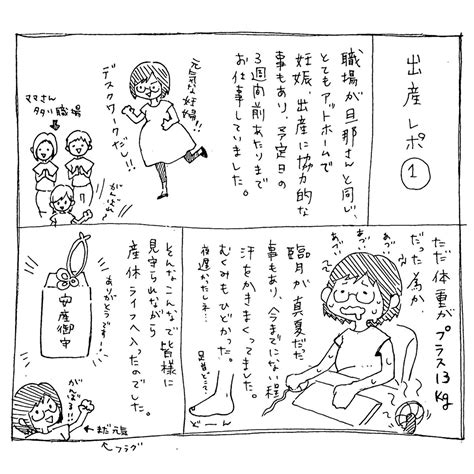 出産レポ
①
職場が旦那さんと同じ、
とてもアットホームで
妊娠、出産に協力的な
事もあり、予定日の
3週間前あたりまで
お仕事していました。
元気な妊婦!!
デスクワークだし!!
ママさん
多い職場
がんばれ!
ただ体重がプラス13kg
だった為か、
あづ〜
あづ〜
あづ〜
臨月が真夏だった
事もあり、今までにない程
汗をかきまくってました。
むくみもひどかった。
夜遅かったしネ…
足首どこ…
どーん
そんなこんなで皆様に
見守られながら
産休ライフへ入ったのでした。
ありがとうです!
安産御守
がんばる!!
まだ元気
フラグ